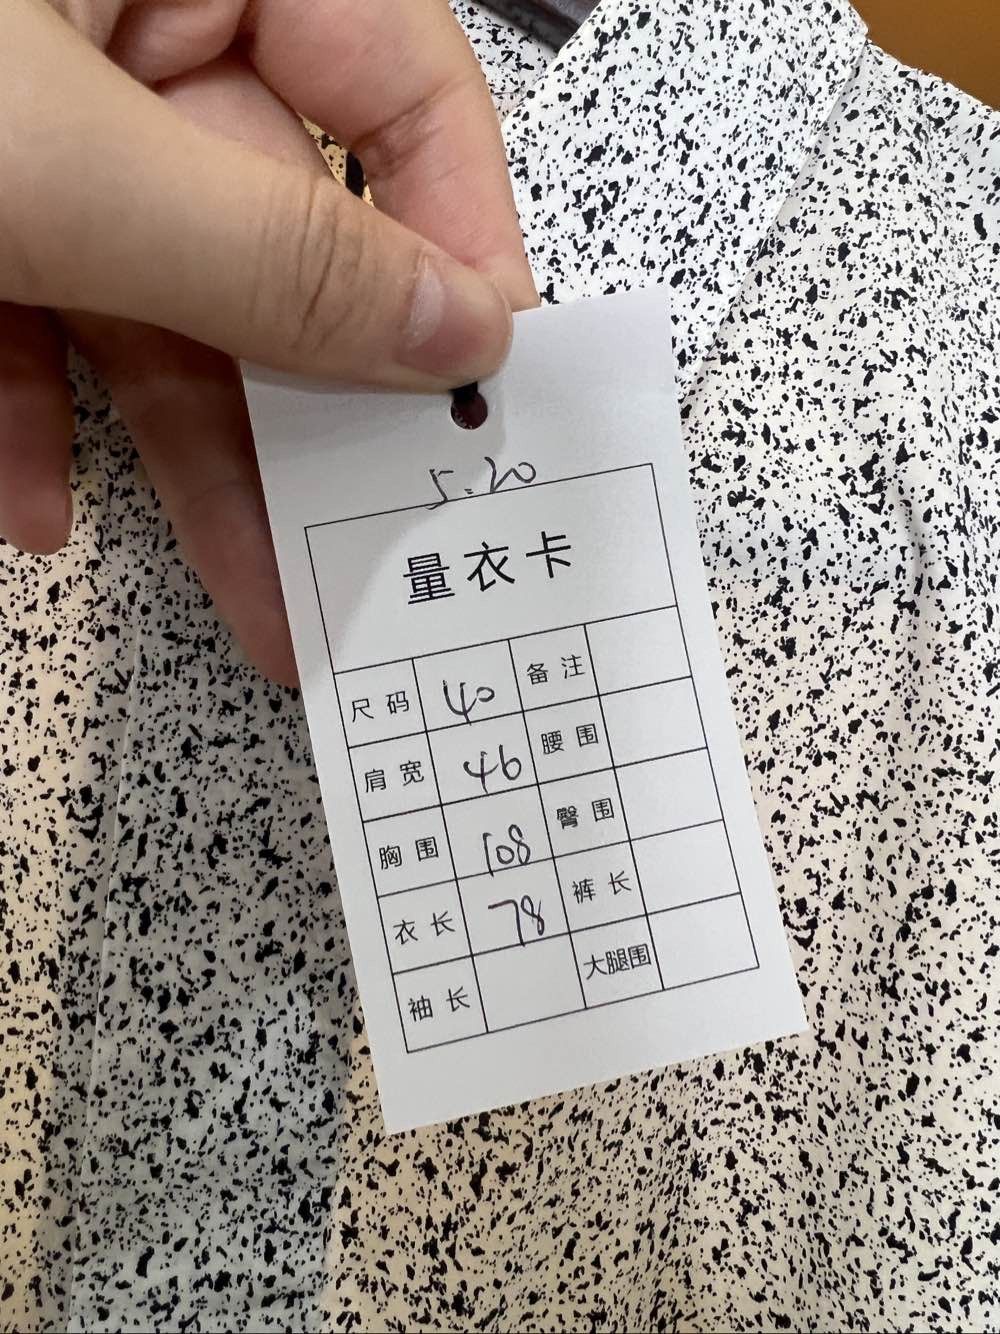 5.20
量衣卡
尺码 40 备注
肩宽 46 腰围
胸围 108 臀围
衣长 78 裤长
袖长 大腿围